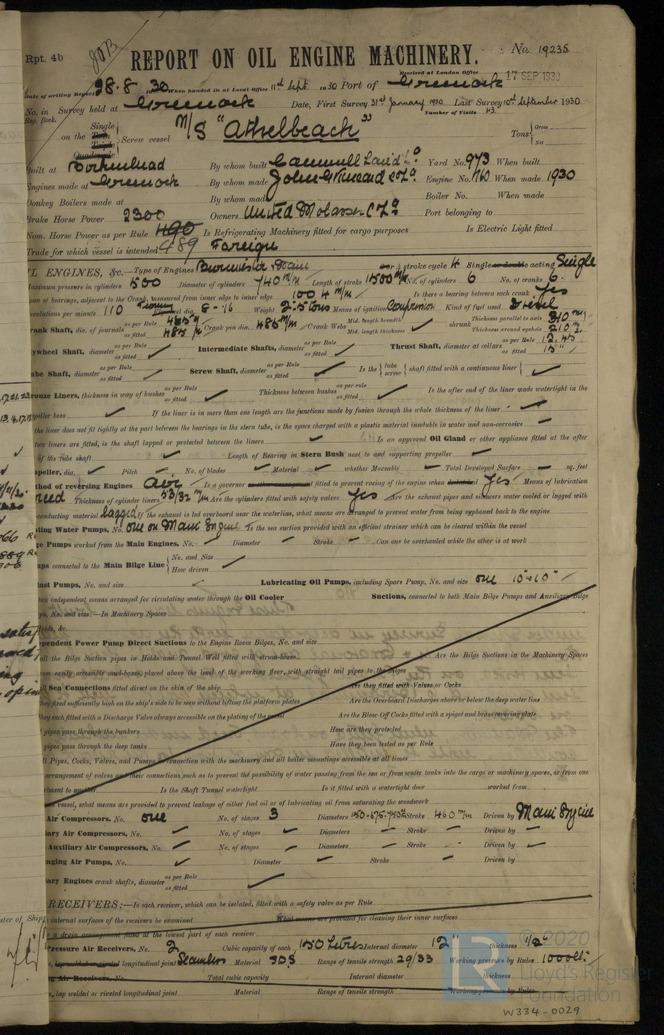 Rpt. 4b
REPORT ON OIL ENGINE MACHINERY.
No. 19235
Received at London Office 17 SEP 1930
Date of writing Report 28.8.30 When handed in at Local Office 11th Sept 1930 Port of Greenock
No. in Survey held at Greenock Date, First Survey 31st January 1930 Last Survey 10th September 1930
Reg. Book. Number of Visits 43
on the Single Screw vessel M/S "Athelbeach" Tons Gross Net
Built at Birkenhead By whom built Cammell Laird & Co Yard No. 973 When built
Engines made at Greenock By whom made John G Kincaid & Co Ld Engine No. 1760 When made 1930
Donkey Boilers made at By whom made Boiler No. When made
Brake Horse Power 2300 Owners United Molasses Co Ld Port belonging to
Nom. Horse Power as per Rule 490 489 Is Refrigerating Machinery fitted for cargo purposes Is Electric Light fitted
Trade for which vessel is intended Foreign
OIL ENGINES, &c.—Type of Engines Burmeister & Wain 2 or 4 stroke cycle 4 Single or double acting Single
Maximum pressure in cylinders 500 Diameter of cylinders 740 m/m Length of stroke 1500 m/m No. of cylinders 6 No. of cranks 6
Span of bearings, adjacent to the Crank, measured from inner edge to inner edge 1004 m/m Is there a bearing between each crank Yes
Revolutions per minute 110 Weight 2.5 tons Means of ignition Compression Kind of fuel used Diesel
Crank Shaft, dia. of journals as per Rule as fitted Crank pin dia. 485 m/m Crank Webs Mid. length breadth Mid. length thickness shrunk Thickness parallel to axis 310 m/m Thickness around eyehole
Flywheel Shaft, diameter as per Rule as fitted Intermediate Shafts, diameter as per Rule as fitted Thrust Shaft, diameter at collars as per Rule as fitted 15"
Tube Shaft, diameter as per Rule as fitted Screw Shaft, diameter as per Rule as fitted Is the tube screw shaft fitted with a continuous liner
Bronze Liners, thickness in way of bushes as per Rule as fitted Thickness between bushes as per rule as fitted Is the after end of the liner made watertight in the
propeller boss If the liner is in more than one length are the junctions made by fusion through the whole thickness of the liner
If the liner does not fit tightly at the part between the bearings in the stern tube, is the space charged with a plastic material insoluble in water and non-corrosive
If two liners are fitted, is the shaft lapped or protected between the liners Is an approved Oil Gland or other appliance fitted at the after
end of the tube shaft Length of Bearing in Stern Bush next to and supporting propeller
Propeller, dia. Pitch No. of blades Material whether Moveable Total Developed Surface sq. feet
Method of reversing Engines Air Is a governor fitted to prevent racing of the engine Yes Means of lubrication
Forced Thickness of cylinder liners 53/32 m/m Are the cylinders fitted with safety valves Yes Are the exhaust pipes and silencers water cooled or lagged with
conducting material lagged If the exhaust is led overboard near the waterline, what means are arranged to prevent water from being syphoned back to the engine
Cooling Water Pumps, No. one on Main Engine Is the sea suction provided with an efficient strainer which can be cleared within the vessel
Bilge Pumps worked from the Main Engines, No. Diameter Stroke Can one be overhauled while the other is at work
Pumps connected to the Main Bilge Line No. and Size How driven
Ballast Pumps, No. and size Lubricating Oil Pumps, including Spare Pump, No. and size one 10" × 10"
Are two independent means arranged for circulating water through the Oil Cooler Suctions, connected to both Main Bilge Pumps and Auxiliary Bilge
Pumps, No. and size:—In Machinery Spaces
Independent Power Pump Direct Suctions to the Engine Room Bilges, No. and size
Are all the Bilge Suction pipes in Holds and Tunnel Well fitted with strum-boxes Are the Bilge Suctions in the Machinery Spaces
led from easily accessible mud-boxes, placed above the level of the working floor, with straight tail pipes to the Bilges
Are all Sea Connections fitted direct on the skin of the ship Are they fitted with Valves or Cocks
Are they fixed sufficiently high on the ship's side to be seen without lifting the platform plates Are the Overboard Discharges above or below the deep water line
Are they each fitted with a Discharge Valve always accessible on the plating of the vessel Are the Blow Off Cocks fitted with a spigot and brass covering plate
What pipes pass through the bunkers How are they protected
What pipes pass through the deep tanks Have they been tested as per Rule
Are all Pipes, Cocks, Valves, and Pumps in connection with the machinery and all boiler mountings accessible at all times
Is the arrangement of valves and their connections such as to prevent the possibility of water passing from the sea or from water tanks into the cargo or machinery spaces, or from one
compartment to another Is the Shaft Tunnel watertight Is it fitted with a watertight door worked from
If a wood vessel, what means are provided to prevent leakage of either fuel oil or of lubricating oil from saturating the woodwork
Main Air Compressors, No. one No. of stages 3 Diameters Stroke 460 m/m Driven by Main Engine
Auxiliary Air Compressors, No. No. of stages Diameters Stroke Driven by
Small Auxiliary Air Compressors, No. No. of stages Diameters Stroke Driven by
Scavenging Air Pumps, No. Diameter Stroke Driven by
Auxiliary Engines crank shafts, diameter as per Rule as fitted
AIR RECEIVERS:—Is each receiver, which can be isolated, fitted with a safety valve as per Rule
Can the internal surfaces of the receivers be examined What means are provided for cleaning their inner surfaces
Is there a drain arrangement fitted at the lowest part of each receiver
High Pressure Air Receivers, No. 2 Cubic capacity of each 150 Litres Internal diameter 12" thickness 1/2"
Seamless, lap welded or riveted longitudinal joint Seamless Material SDS Range of tensile strength 29/33 Working pressure by Rules 1000 lbs
Starting Air Receivers, No. Total cubic capacity Internal diameter thickness
Seamless, lap welded or riveted longitudinal joint Material Range of tensile strength Working pressure by Rules
© 2020
LR
Lloyd's Register
Foundation
W334-0029